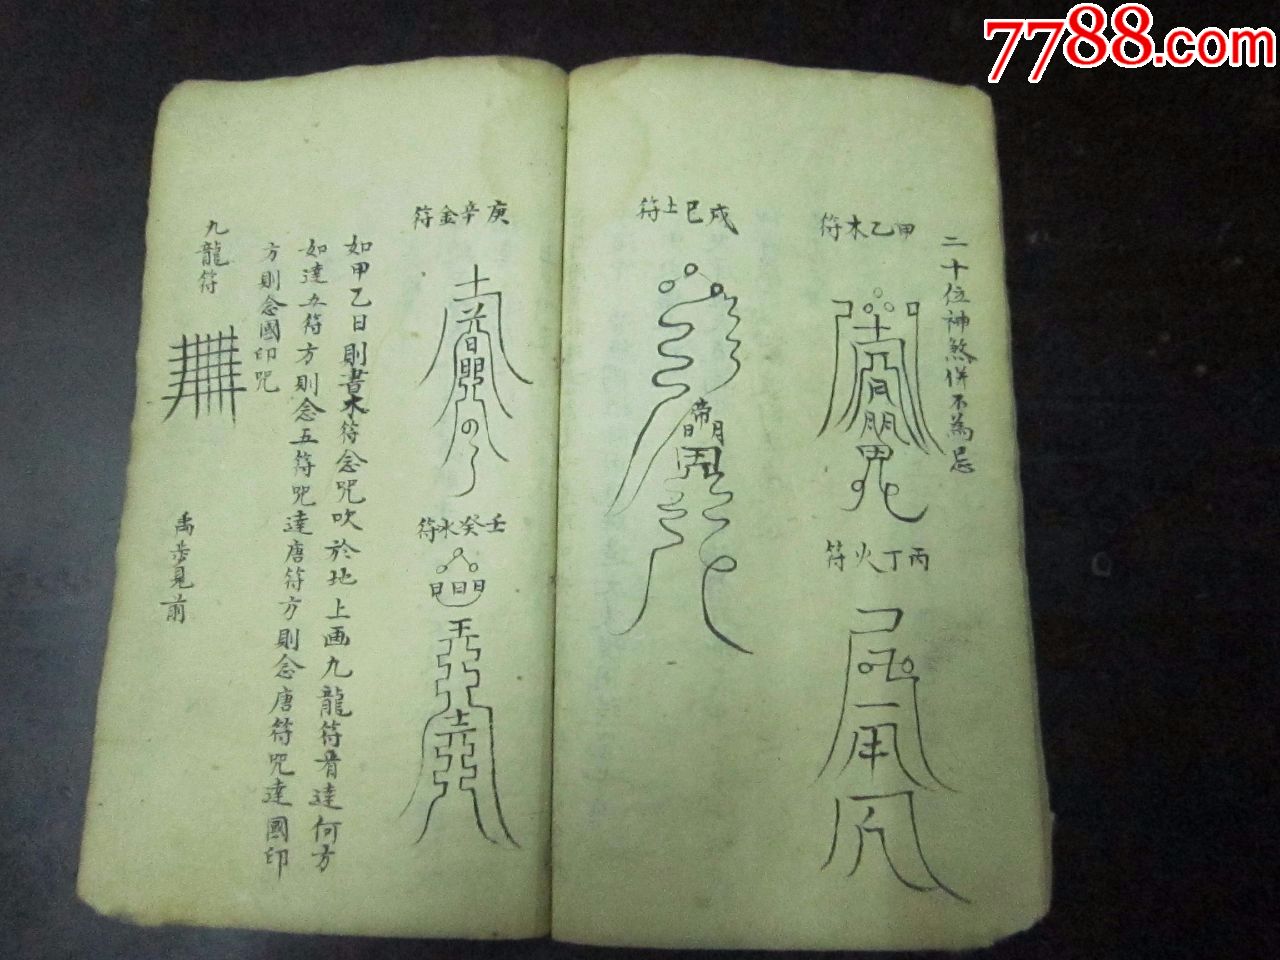 7788.com
二十位神煞併不為忌
甲乙木符
丙丁火符
戍巳土符
庚辛金符
壬癸水符
如甲乙日則書木符念咒吹於地上画九龍符看達何方
如達五符方則念五符咒達唐符方則念唐符咒達國印
方則念國印咒
九龍符
禹步見前